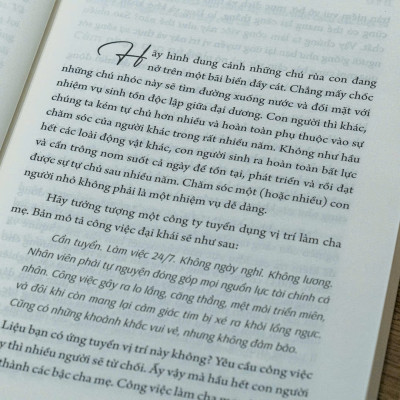 Hãy hình dung cảnh những chú rùa con đang
nở trên một bãi biển đầy cát. Chẳng mấy chốc
những chú nhóc này sẽ tìm đường xuống nước và đối mặt với
nhiệm vụ sinh tồn độc lập giữa đại dương. Con người thì khác,
chúng ta kém tự chủ hơn nhiều và hoàn toàn phụ thuộc vào sự
chăm sóc của người khác trong rất nhiều năm. Không như hầu
hết các loài động vật khác, con người sinh ra hoàn toàn bất lực
và cần trông nom suốt cả ngày để tồn tại, phát triển và rồi đạt
được sự tự chủ sau nhiều năm. Chăm sóc một (hoặc nhiều) con
người nhỏ không phải là một nhiệm vụ dễ dàng.
Hãy tưởng tượng một công ty tuyển dụng vị trí làm cha
mẹ. Bản mô tả công việc đại khái sẽ như sau:
Cần tuyển. Làm việc 24/7. Không ngày nghỉ. Không lương.
Nhân viên phải tự nguyện đóng góp mọi nguồn lực tài chính cá
nhân. Công việc gây ra lo lắng, căng thẳng, mệt mỏi triền miên,
và đôi khi còn mang lại cảm giác tim bị xé ra khỏi lồng ngực.
Cũng có những khoảnh khắc vui vẻ, nhưng không đảm bảo.
Liệu bạn có ứng tuyển vị trí này không? Yêu cầu công việc
y thì nhiều người sẽ từ chối. Ấy vậy mà hầu hết con người
thành các bậc cha mẹ. Công việc làm cha m